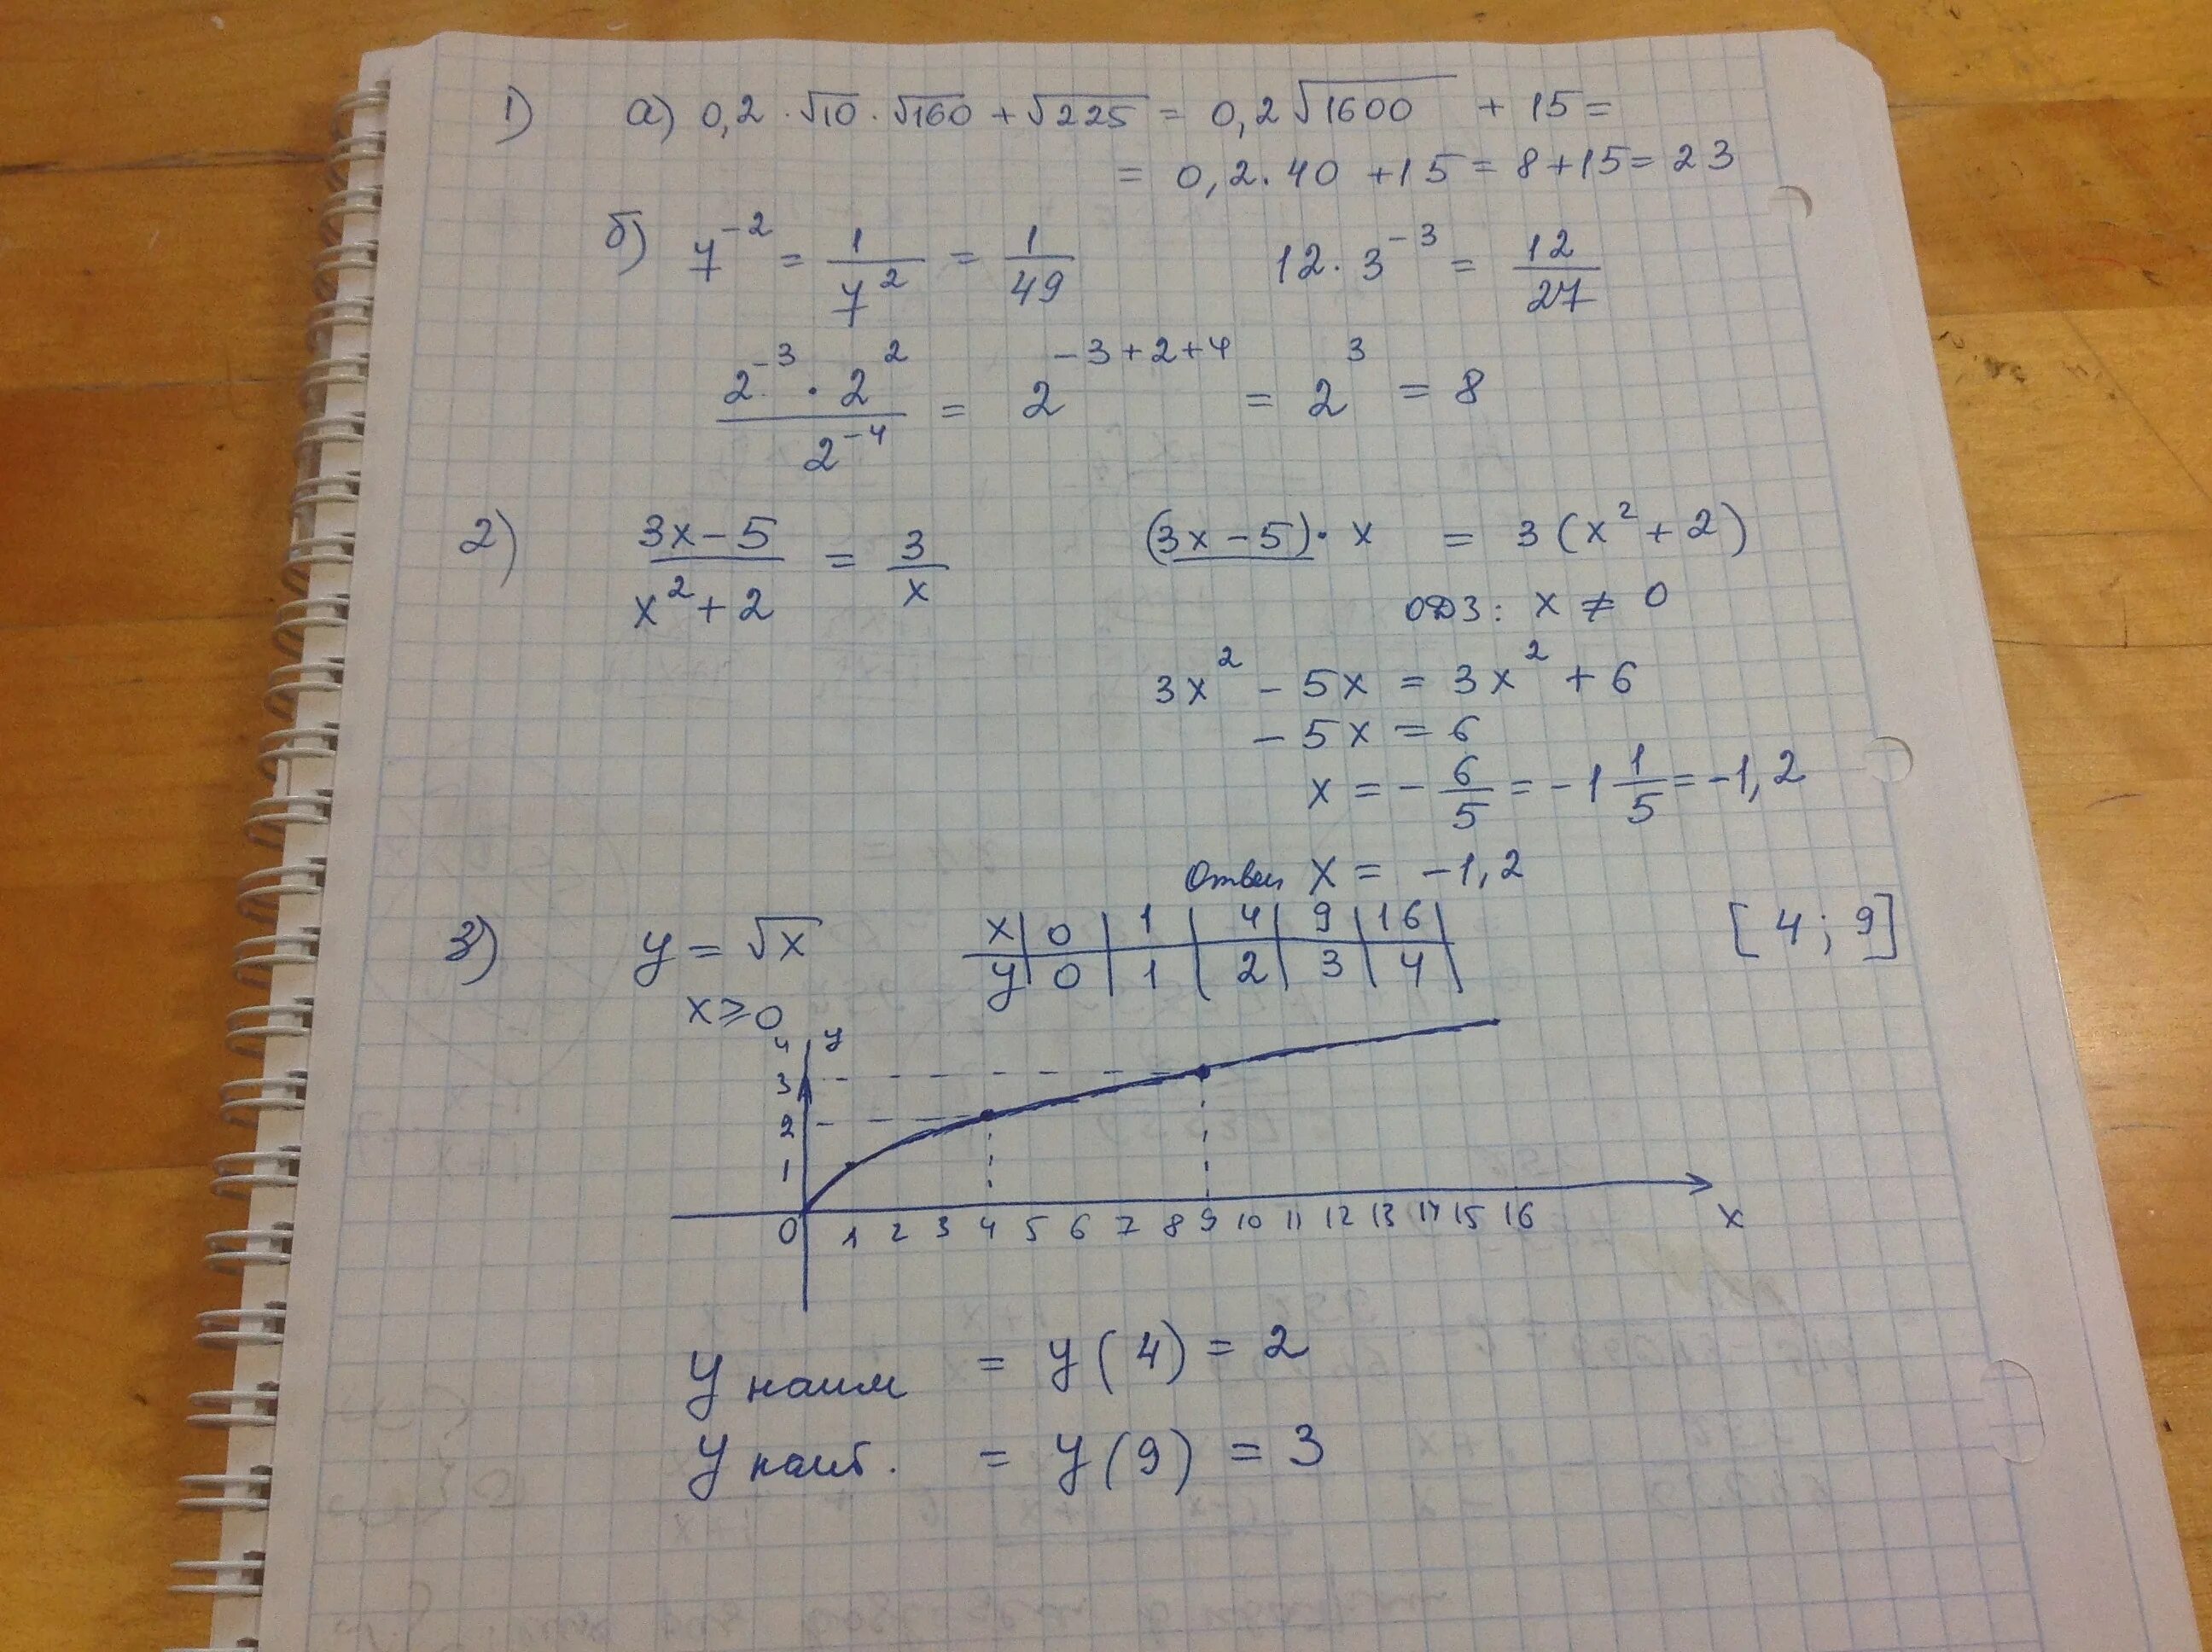 1) а) 0,2 · √10 · √160 + √225 = 0,2 √1600 + 15 =
= 0,2 · 40 + 15 = 8 + 15 = 23
б) 7⁻² = 1/7² = 1/49 12 · 3⁻³ = 12/27
(2⁻³ · 2²)/2⁻⁴ = 2⁻³⁺²⁺⁴ = 2³ = 8
2) (3x − 5)/(x² + 2) = 3/x (3x − 5) · x = 3(x² + 2)
ОДЗ: x ≠ 0
3x² − 5x = 3x² + 6
− 5x = 6
x = − 6/5 = − 1 1/5 = −1,2
Ответ x = −1,2
3) y = √x x | 0 | 1 | 4 | 9 | 16 | [4; 9]
y | 0 | 1 | 2 | 3 | 4 |
x ⩾ 0
4 y
3
2
1
0 1 2 3 4 5 6 7 8 9 10 11 12 13 14 15 16 x
y наим = y(4) = 2
y наиб. = y(9) = 3